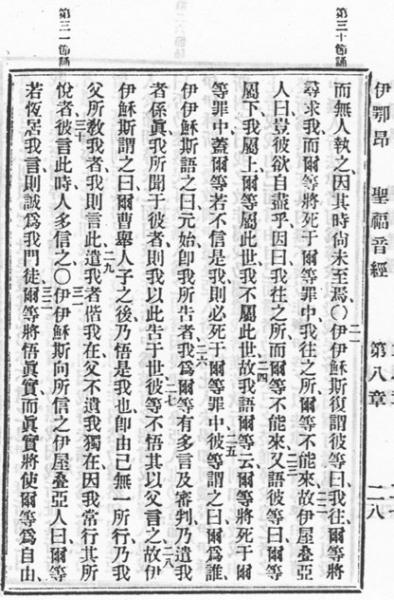 第三十節誦
伊鄂昂 聖福音經 第八章 二八
而無人執之、因其時尙未至焉、〇二一伊伊穌斯復謂彼等曰、我往、爾等將
尋求我、而爾等將死于爾等罪中、我往之所、爾等不能來、二二故伊屋疊亞
人曰、豈彼欲自盡乎、因曰、我往之所、而爾等不能來、二三又語彼等曰、爾等
屬下、我屬上、爾等屬此世、我不屬此世、二四故我語爾等云、爾等將死于爾
等罪中、蓋爾等若不信是我、則必死于爾等罪中、二五彼等謂之曰、爾爲誰、
伊伊穌斯語之曰、元始卽我所告者、二六我爲爾等有多言及審判、乃遣我
者係眞、我所聞于彼者、則我以此告于世、二七彼等不悟其以父言之、二八故伊
伊穌斯謂之曰、爾曹舉人子之後、乃悟是我也、卽由己無一所行、乃我
父所敎我者、我則言此、二九遣我者偕我在、父不遺我獨在、因我常行其所
悅者、三十彼言此時、人多信之、〇三一伊伊穌斯向所信之伊屋疊亞人曰、爾等
若恆居我言、則誠爲我門徒、三二爾等將悟眞實、而眞實將使爾等爲自由、
第三一節誦